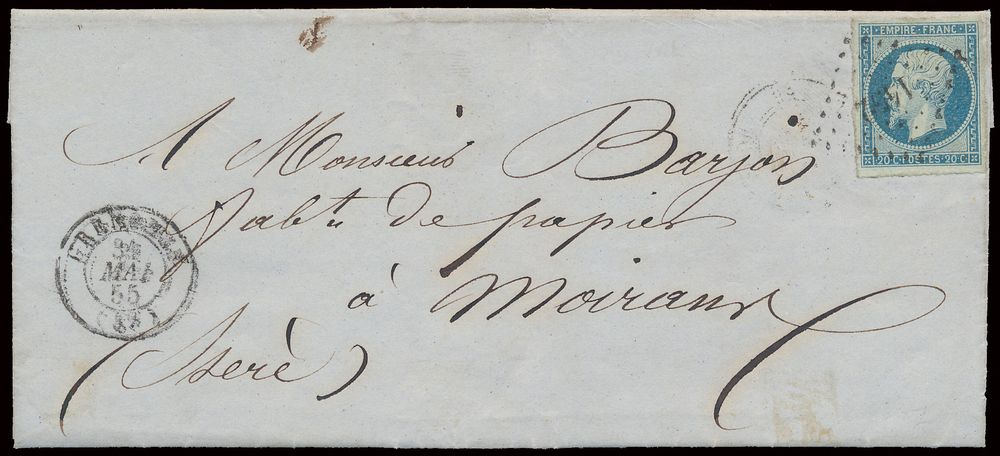 EMPIRE FRANC
20 C POSTES 20 C
A Monsieur Barjon
fabt de papier
à Moirans
(Isère)
GRENOBLE
MAI
55
(38)